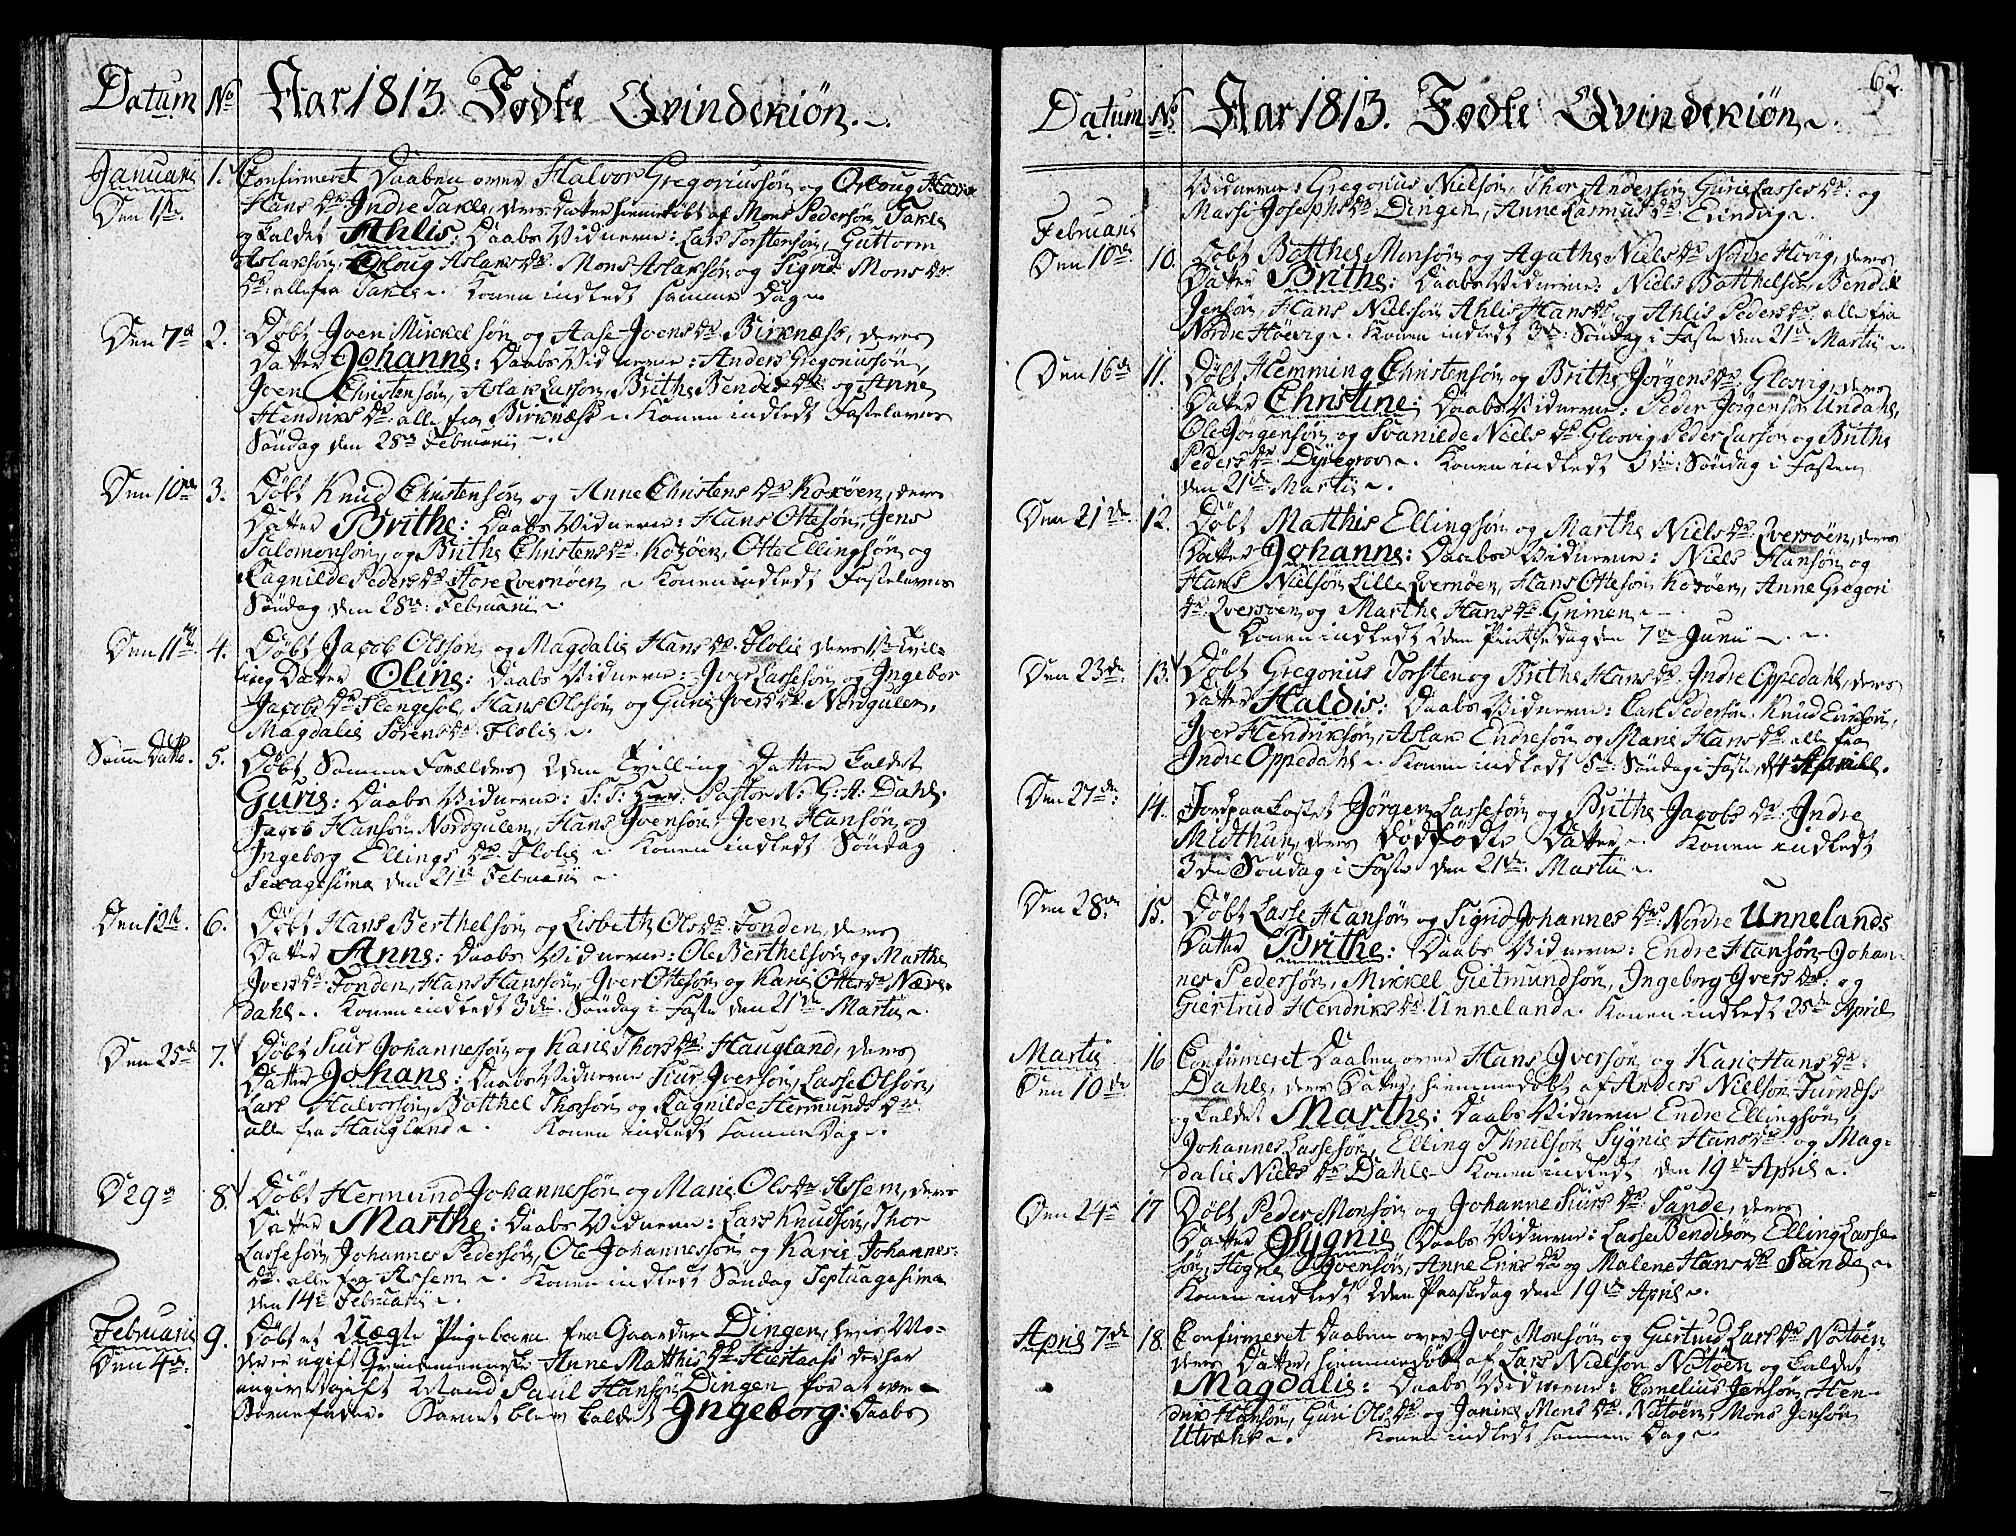 Datum No Aar 1813. Fødte Qvindekiøn.
Januarii 1. Confirmeret Daaben over Halvor Gregoriussøn og Orloug
Den 1te. Hans Dr Indre Takle, deres Datter hiemmedøbt af Mons Pedersøn Takle
og kaldet Ahlis: Daabs Vidnerne: Lars Torstensøn, Guttorm
Aslaksøn, Orloug Aslaks Dr. Mons Aslaksøn og Sigrid Mons Dr
Dr: alle fra Takle. Konen indledt samme Dag.
Den 7de 2. Døbt Joen Mickelsøn og Aase Joens Dr Birknæss, deres
Datter Johanne: Daabs Vidnerne: Anders Gregoriussøn,
Joen Christensøn, Aslak Larsøn, Brithe Bendix Dr: og Anne
Hendriks Dr: alle fra Birknæss. Konen indledt Fastelavns
Søndag den 28de Februarii.
Den 10de 3. Døbt Knud Christensøn og Anne Christens Dr Koxøen, deres
Datter Brithe: Daabs Vidnerne: Hans Ottesøn, Jens
Salomonsøn, og Brithe Christens Dr. Koxøen, Otte Ellingsøn og
Ragnilde Peders Dr. Store Qvernøen. Konen indledt Fastelavns
Søndag den 28de: Februarii.
Den 11te 4. Døbt Jacob Olssøn og Magdalie Hans Dr. Flolie deres 1ste Tvil-
ling Datter Oline: Daabs Vidnerne: Iver Lassesøn og Ingebor
Jacobs Dr Slengesol, Hans Olssøn og Gurie Ivers Dr. Nordgulen,
Magdalie Sørens Dr. Flolie.
Samme Datto. 5. Døbt Samme Forældres 2den Tvilling Datter kaldet
Gurie: Daabs Vidnerne: S: T: Herr: Pastor N: G: A: Dahl.
Jacob Hansøn Nordgulen, Hans Joensøn, Joen Hansøn og
Ingeborg Ellings Dr. Flolie. Konen indledt Søndag
Sexagesima den 21de Februarii.
Den 12te. 6. Døbt Hans Berthelsøn og Lisbeth Ols Dr. Fonden, deres
Datter Anne: Daabs Vidnerne: Ole Berthelsøn og Marthe
Ivers Dr. Fonden, Hans Hanssøn, Iver Ottesøn og Karie Ottes Dr Næve-
dahl. Konen indledt 3die Søndag i Faste den 21de Martii.
Den 25de 7. Døbt Siur Johannessøn og Karie Thors Dr. Haugland, deres
Datter Johane: Daabs Vidnerne Siur Iversøn, Lasse Olsøn,
Lars Halversøn, Botthel Thorsøn og Ragnilde Hermunds Dr.
alle fra Haugland. Konen indledt samme Dag.
D 29de 8. Døbt Hermund Johannessøn og Marie Ols Dr. Assem, deres
Datter Marthe: Daabs Vidnerne: Lars Knudsøn, Thor
Lassesøn, Johannes Pedersøn, Ole Johannessøn og Karie Johannes-
Dr. alle fra Assem. Konen indledt Søndag Septuagesima
den 14de Februarii.
Februarii 9. Døbt et Uægte Pigebarn fra Gaarden Dingen, hvis Mo-
Den 4de. der er ugift Anne Matthis Dr. Hiertaass der har
angivet gift Mand Paul Hansøn Dingen for at være
Barnefader. Barnet blev kaldet Ingeborg: Daabs
62.
Datum No. Aar 1813. Fødte Qvindekiøn.
Vidnerne: Gregorius Nielsøn, Thor Andersøn, Gurie Lasses Dr. og
Massi Josephs Dr Dingen, Anne Rasmus Dr. Evindvig.
Februarii
Den 10de 10. Døbt Botthel Monsøn og Agathe Niels Dr. Nordre Høivig, deres
Datter Brithe: Daabs Vidnerne: Niels Botthelsøn, Bendix
Jensøn, Hans Nielsøn Ahlis Hans Dr og Ahlis Peders Dr. alle fra
Nordre Høevig. Konen indledt 3die Søndag i Faste den 21de Martii.
Den 16de 11. Døbt Hemming Christensøn og Brithe Jørgens Dr. Glosvig, deres
Datter Christine: Daabs Vidnerne: Peder Jørgensøn Undahl,
Ole Jørgensøn og Svanilde Niels Dr. Glosvig Peder Larsøn og Brithe
Peders Dr. Dyregrov. Konen indledt 3die Søndag i Fasten
den 21de Martii.
Den 21de. 12. Døbt Matthis Ellingsøn og Marthe Niels Dr. Qvernøen, deres
Datter Johanne: Daabs Vidnerne: Niels Hansøn og
Hans Nielsøn Lille Qvernøen, Hans Ottesøn Koxøen, Anne Gregori
Dr. Qvernøen og Marthe Hans Dr. Grimen.
Konen indledt 2den Pintsedag den 7de Junii.
Den 23de. 13. Døbt Gregorius Torsten og Brithe Hans Dr. Indre Oppedahl, deres
Datter Haldis: Daabs Vidnerne: Carl Pedersøn, Knud Erichsøn,
Iver Hendriksøn, Aslak Endresøn og Marie Hans Dr. alle fra
Indre Oppedahl. Konen indledt 5te Søndag i Faste, d 4 Aprill.
Den 27de: 14. Jordpaakastet Jørgen Lassesøn og Brithe Jacobs Dr. Indre
Midthun, deres dødfødte Datter. Konen indledt
3die Søndag i Faste den 21de Martii.
Den 28de. 15. Døbt Lasse Hansøn og Sigrid Johannes Dr. Nordre Unnelands
Datter Brithe: Daabs Vidnerne: Endre Hansøn, Johan-
nes Pedersøn, Mickel Gietmundsøn, Ingeborg Ivers Dr: og
Giertrud Hendriks Dr. Unneland. Konen indledt 25de April
Martii 16 Confirmeret Daaben over Hans Iversøn og Karie Hans Dr.
Den 10de. Dahle, deres Datter, hiemmedøbt af Anders Nielsøn Furnæss
og kaldet Marthe: Daabs Vidnerne Endre Ellingsøn,
Johannes Lassesøn, Elling Thnilsøn Sygnie Hans Dr. og Mag-
dalie Niels Dr. Dahle. Konen indledt den 19de April.
Den 24de 17 Døbt Peder Monsøn og Johanne Siurs Dr. Sande, deres
Datter Sygnie Daabs Vidnerne: Lasse Bendixsøn, Elling Lasse-
søn, Hogne Joensøn, Anne Eriks Dr og Malene Hans Dr Sande.
Konen indledt 2den Paaskedag den 19de April.
April 7de 18. Confirmeret Daaben over Iver Monsøn og Giertrud Lars Dr Notøen
deres Datter, hiemmedøbt af Lars Nielsøn Notøen og kaldet
Magdalie: Daabs Vidnerne: Cornelius Jensøn, Hen-
drik Hansøn, Guri Ols Dr. og Janike Mons Dr. Notøen, Mons Jensøn
Utvække. Konen indledt samme Dag.